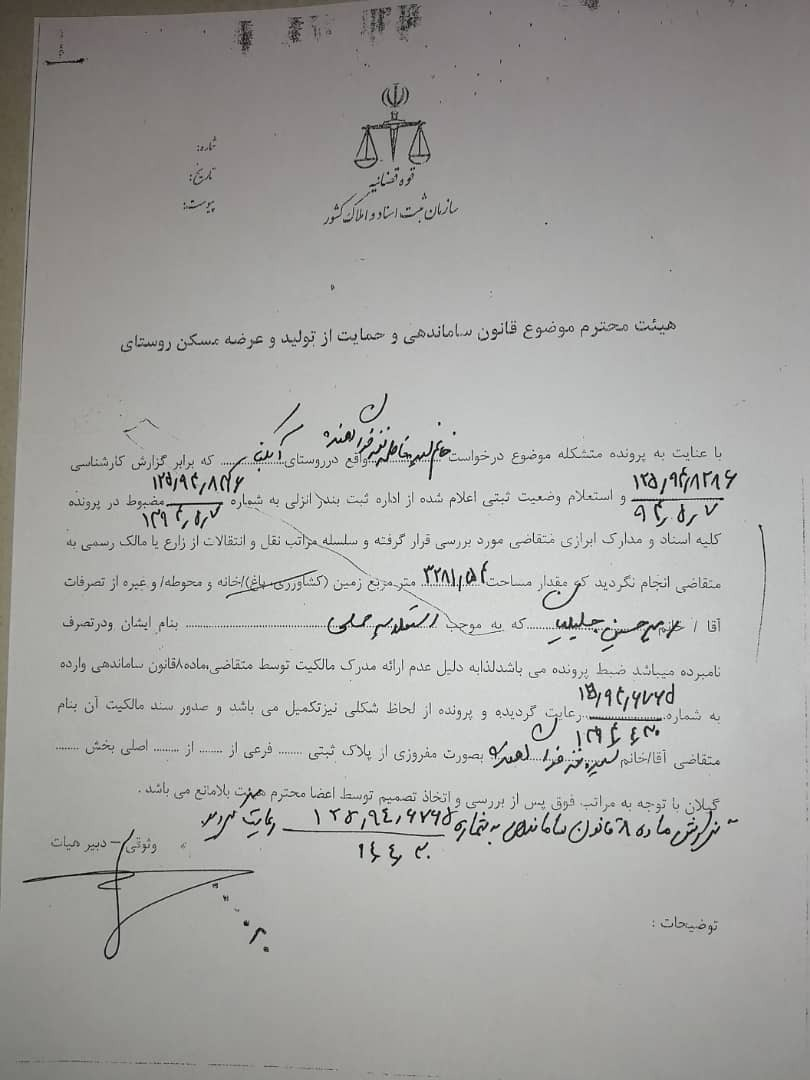 قوه قضائیه
سازمان ثبت اسناد و املاک کشور
شماره:
تاریخ:
پیوست:
هیئت محترم موضوع قانون ساماندهی و حمایت از تولید و عرضه مسکن روستای
با عنایت به پرونده متشکله موضوع درخواست خانم واقع درروستای که برابر گزارش کارشناسی
۱۲۵,۹۴,۸۲۸۶ / ۹۴,۵,۷ و استعلام وضعیت ثبتی اعلام شده از اداره ثبت بندر انزلی به شماره ۱۳۹۴,۵,۷ مضبوط در پرونده
کلیه اسناد و مدارک ابرازی متقاضی مورد بررسی قرار گرفته و سلسله مراتب نقل و انتقالات از زارع یا مالک رسمی به
متقاضی انجام نگردید که مقدار مساحت ۳۲۸۱,۵۴ متر مربع زمین (کشاورزی، باغ)/خانه و محوطه/ و غیره از تصرفات
آقا / خانم که به موجب بنام ایشان ودرتصرف
نامبرده میباشد ضبط پرونده می باشدلذابه دلیل عدم ارائه مدرک مالکیت توسط متقاضی،ماده۸قانون ساماندهی وارده
به شماره رعایت گردیده و پرونده از لحاظ شکلی نیزتکمیل می باشد و صدور سند مالکیت آن بنام
متقاضی آقا/خانم بصورت مفروزی از پلاک ثبتی ........ فرعی از ........ از ......... اصلی بخش ........
گیلان با توجه به مراتب فوق پس از بررسی و اتخاذ تصمیم توسط اعضا محترم هیئت بلامانع می باشد .
ماده ۸ قانون ساماندهی به شماره ۱۲۵,۹۴,۶۷۶۵
وثوقی – دبیر هیات
توضیحات :